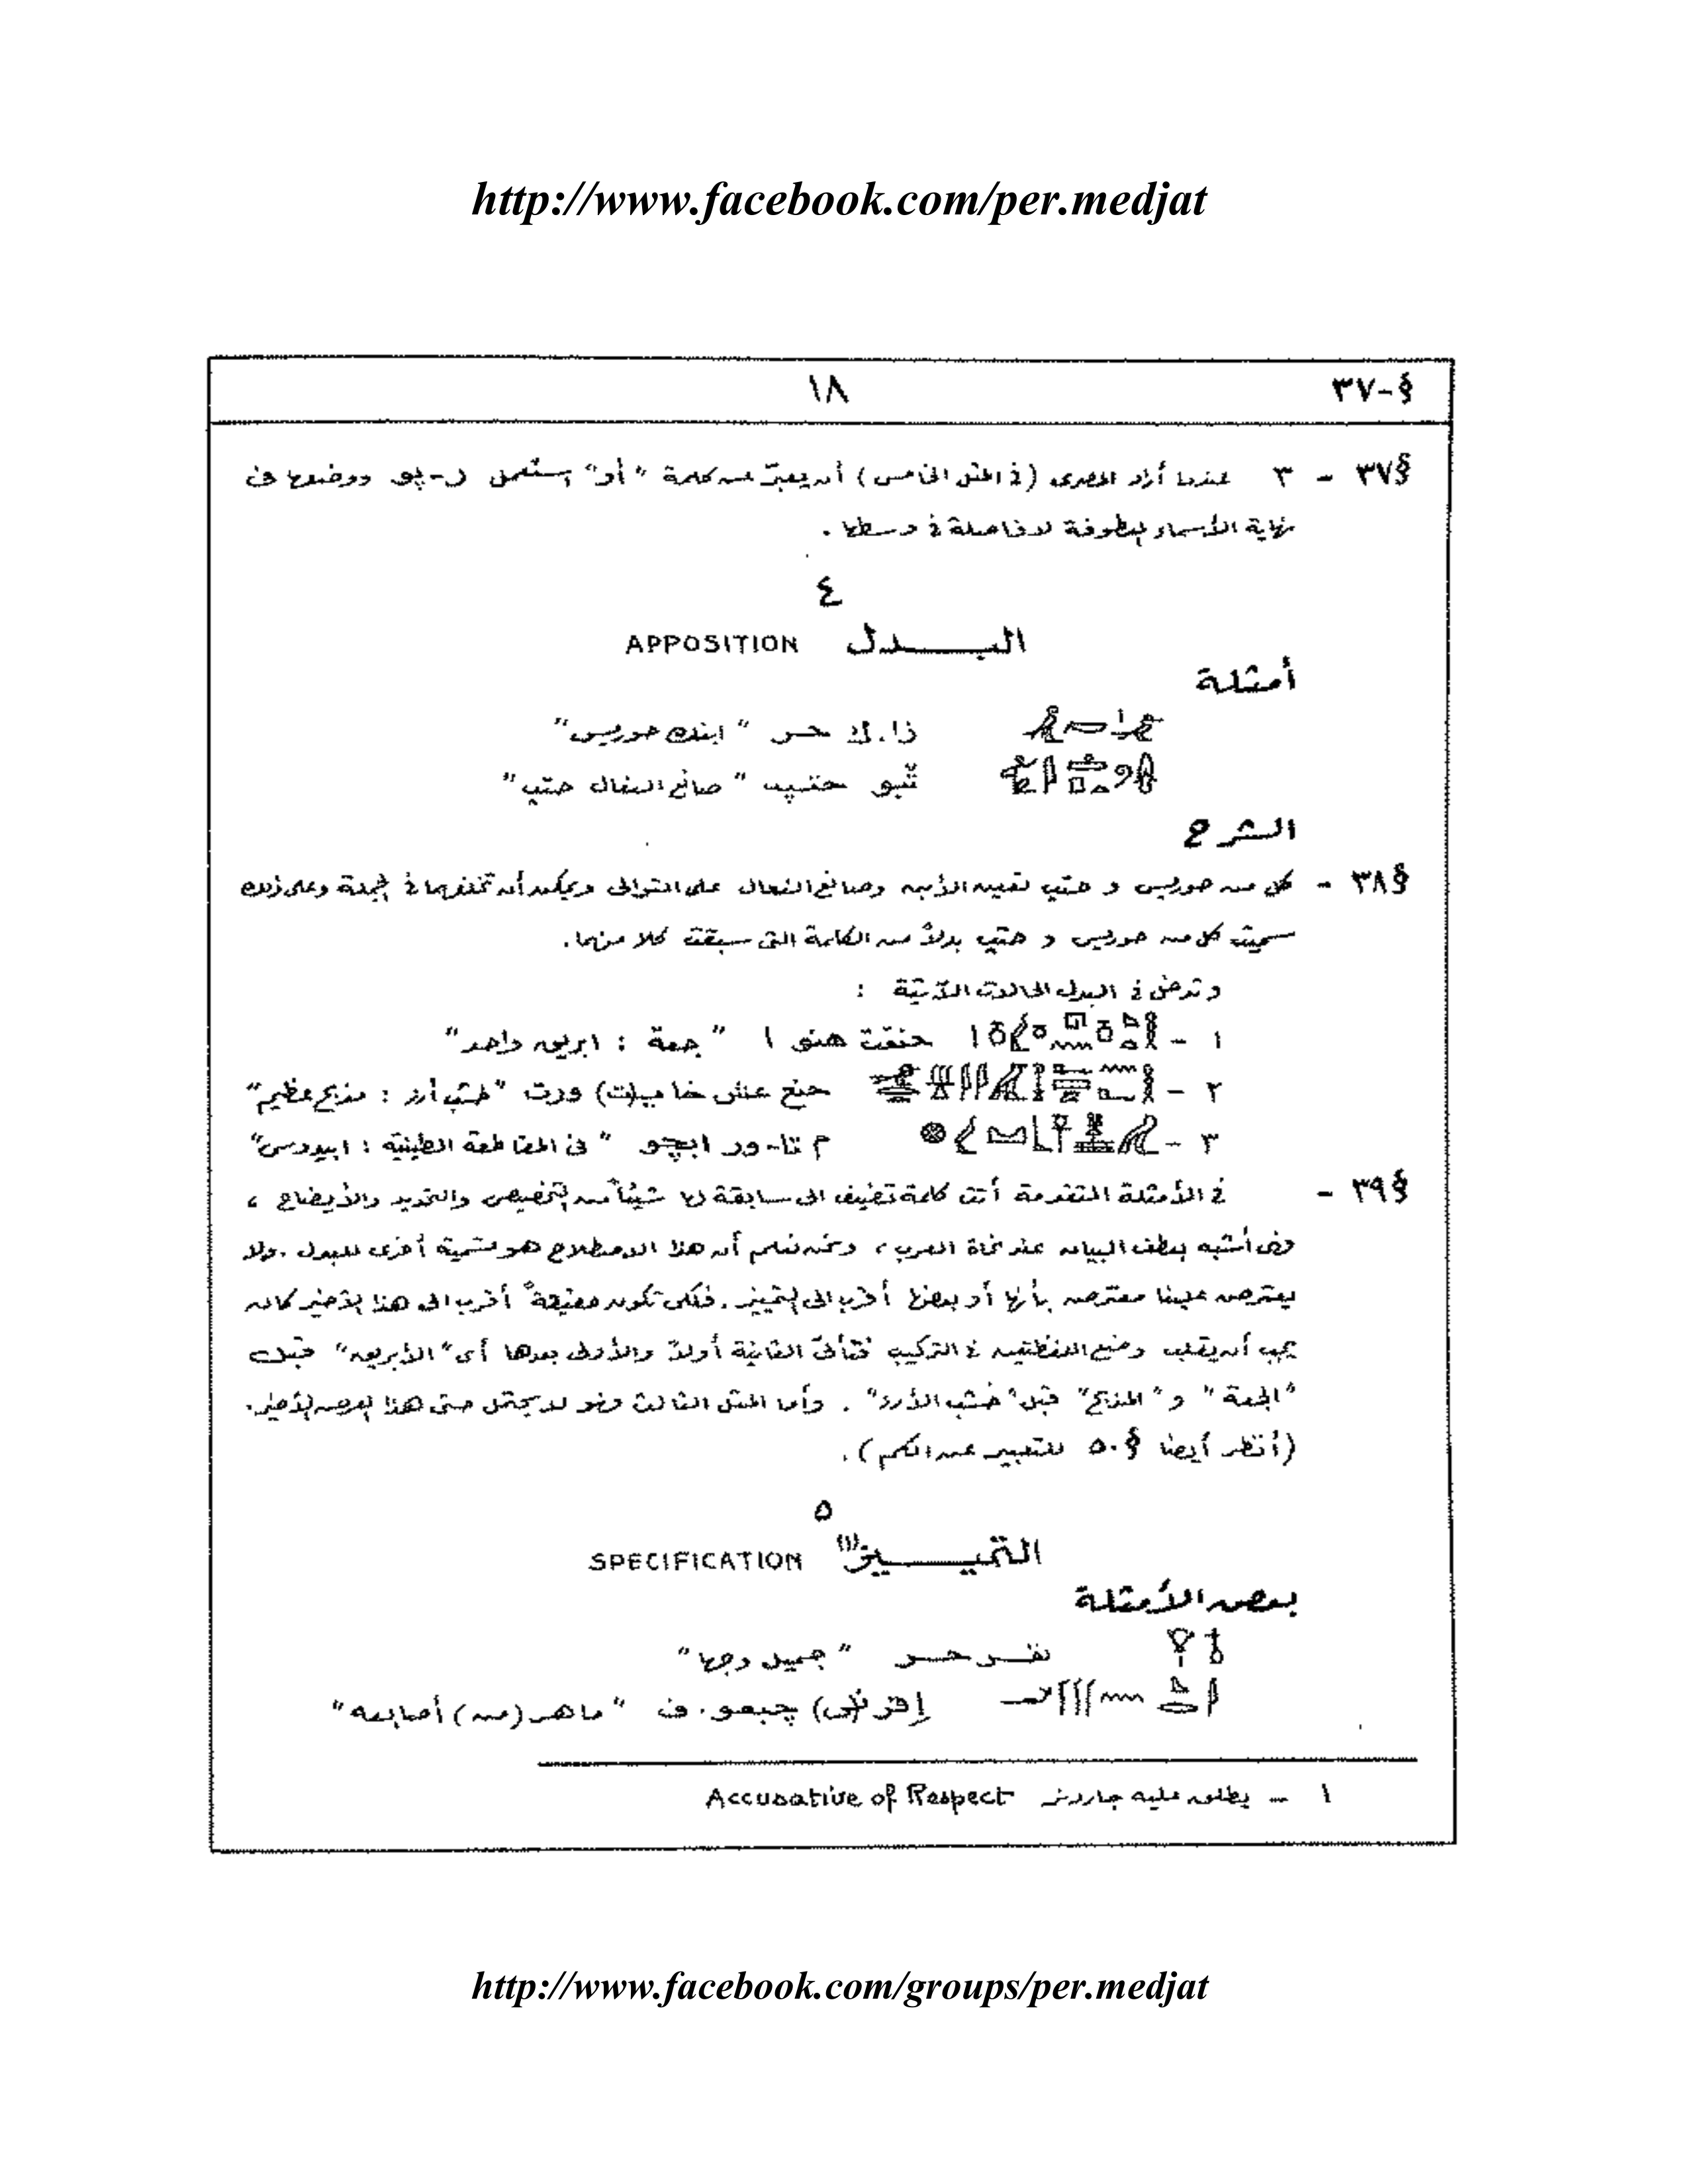 http://www.facebook.com/per.medjat
§-٣٧ ١٨
§٣٧ - ٣ عندما أراد المصرى (فى المثل الخامس) أن يعبّر عن كلمة "أو" إستعمل ر-پو ووضعها فى
نهاية الأسماء المعطوفة لا فاصلة فى وسطها .
٤
البـدل APPOSITION
أمثلة
ذا.ك حر "ابنك حوريس"
ثبو حتپ "صانع النعال حتپ"
الشرح
§٣٨ - كل من حوريس و حتپ تعيين الأبن وصانع النعال على التوالى ويمكن أن تخلفهما فى الجملة وعلى ذلك
سميت كل من حوريس و حتپ بدلاً من الكلمة التى سبقت كلا منهما.
وتدخل فى البدل الحالات الآتية :
١ - حنقت هنو ١ "جعة : ابريق واحد"
٢ - حنع عش خاـ(ت) ورت "خشب أرز : مذبح عظيم"
٣ - م تا-ور ابچو "فى المقاطعة الطينية : ابيدوس"
§٣٩ - فى الأمثلة المتقدمة أتت كلمة تضيف الى سابقة لها شيئاً من التخصيص والتحديد والأيضاح ،
وهى أشبه بعطف البيان عند نحاة العرب ، ونحن نعلم أن هذا الاصطلاح هو تسمية أخرى للبدل . ولا
يعترض علينا معترض بأنها أو بعضها أقرب الى التمييز . فلكى تكون حقيقةً أقرب الى هذا الأخير كان
يجب أن يقلب وضع اللفظتين فى التركيب فتأتى الثانية أولاً والأولى بعدها أى "الأبريق" قبل
"الجعة" و "المذبح" قبل "خشب الأرز" . وأما المثل الثالث فهو لا يحتمل حتى هذا الفرض الأخير.
(أنظر أيضا §٥٠ للتعبير عن الكم).
٥
التمييـز(١) SPECIFICATION
بعض الأمثلة
نفر حر "جميل وجها"
إقر (نى) چبعو.ف "ماهر (من) أصابعه"
١ - يطلق عليه جاردنر Accusative of Respect
http://www.facebook.com/groups/per.medjat